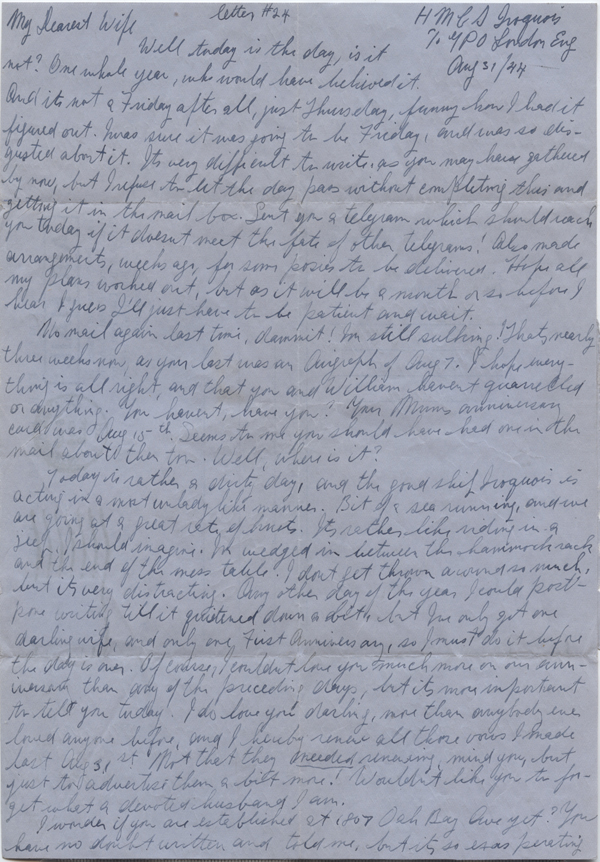 My Dearest Wife
letter #24
H M C S Iroquois
℅ GPO London Eng
Aug 31/44
Well today is the day, is it
not? One whole year, who would have believed it.
And its not a Friday after all, just Thursday, funny how I had it
figured out. I was sure it was going to be Friday, and was so dis-
gusted about it. Its very difficult to write, as you may have gathered
by now, but I refuse to let the day pass without completing this and
getting it in the mail box. Sent you a telegram which should reach
you today if it doesnt meet the fate of other telegrams! Also made
arrangements, weeks ago, for some posies to be delivered. Hope all
my plans worked out, but as it will be a month or so before I
hear I guess I'll just have to be patient and wait.
No mail again last time, dammit! Im still sulking! Thats nearly
three weeks now, as your last was an Airgraph of Aug 7. I hope every-
thing is all right, and that you and William havent quarrelled
or anything. You havent, have you? Your Mums anniversary
card was Aug 15th. Seems to me you should have had one in the
mail about then too. Well, where is it?
Today is rather a dirty day, and the good ship Iroquois is
acting in a most unladylike manner. Bit of a sea running, and we
are going at a great rate of knots. Its rather like riding in a
Jeep I should imagine. Im wedged in between the hammock rack
and the end of the mess table. I dont get thrown around so much,
but its very distracting. Any other day of the year I could post-
pone writing till it quietened down a bit, but Ive only got one
darling wife, and only one First Anniversary, so I must do it before
the day is over. Of course, I couldnt love you much more on our anni-
versary than any of the preceding days, but its more important
to tell you today. I do love you darling, more than anybody ever
loved anyone before, and I hereby renew all those vows I made
last Aug 31st. Not that they needed renewing, mind you, but
just to advertise them a bit more! Wouldnt like you to for-
get what a devoted husband I am.
I wonder if you are established at 1807 Oak Bay Ave yet? You
have no doubt written and told me, but its so exasperating